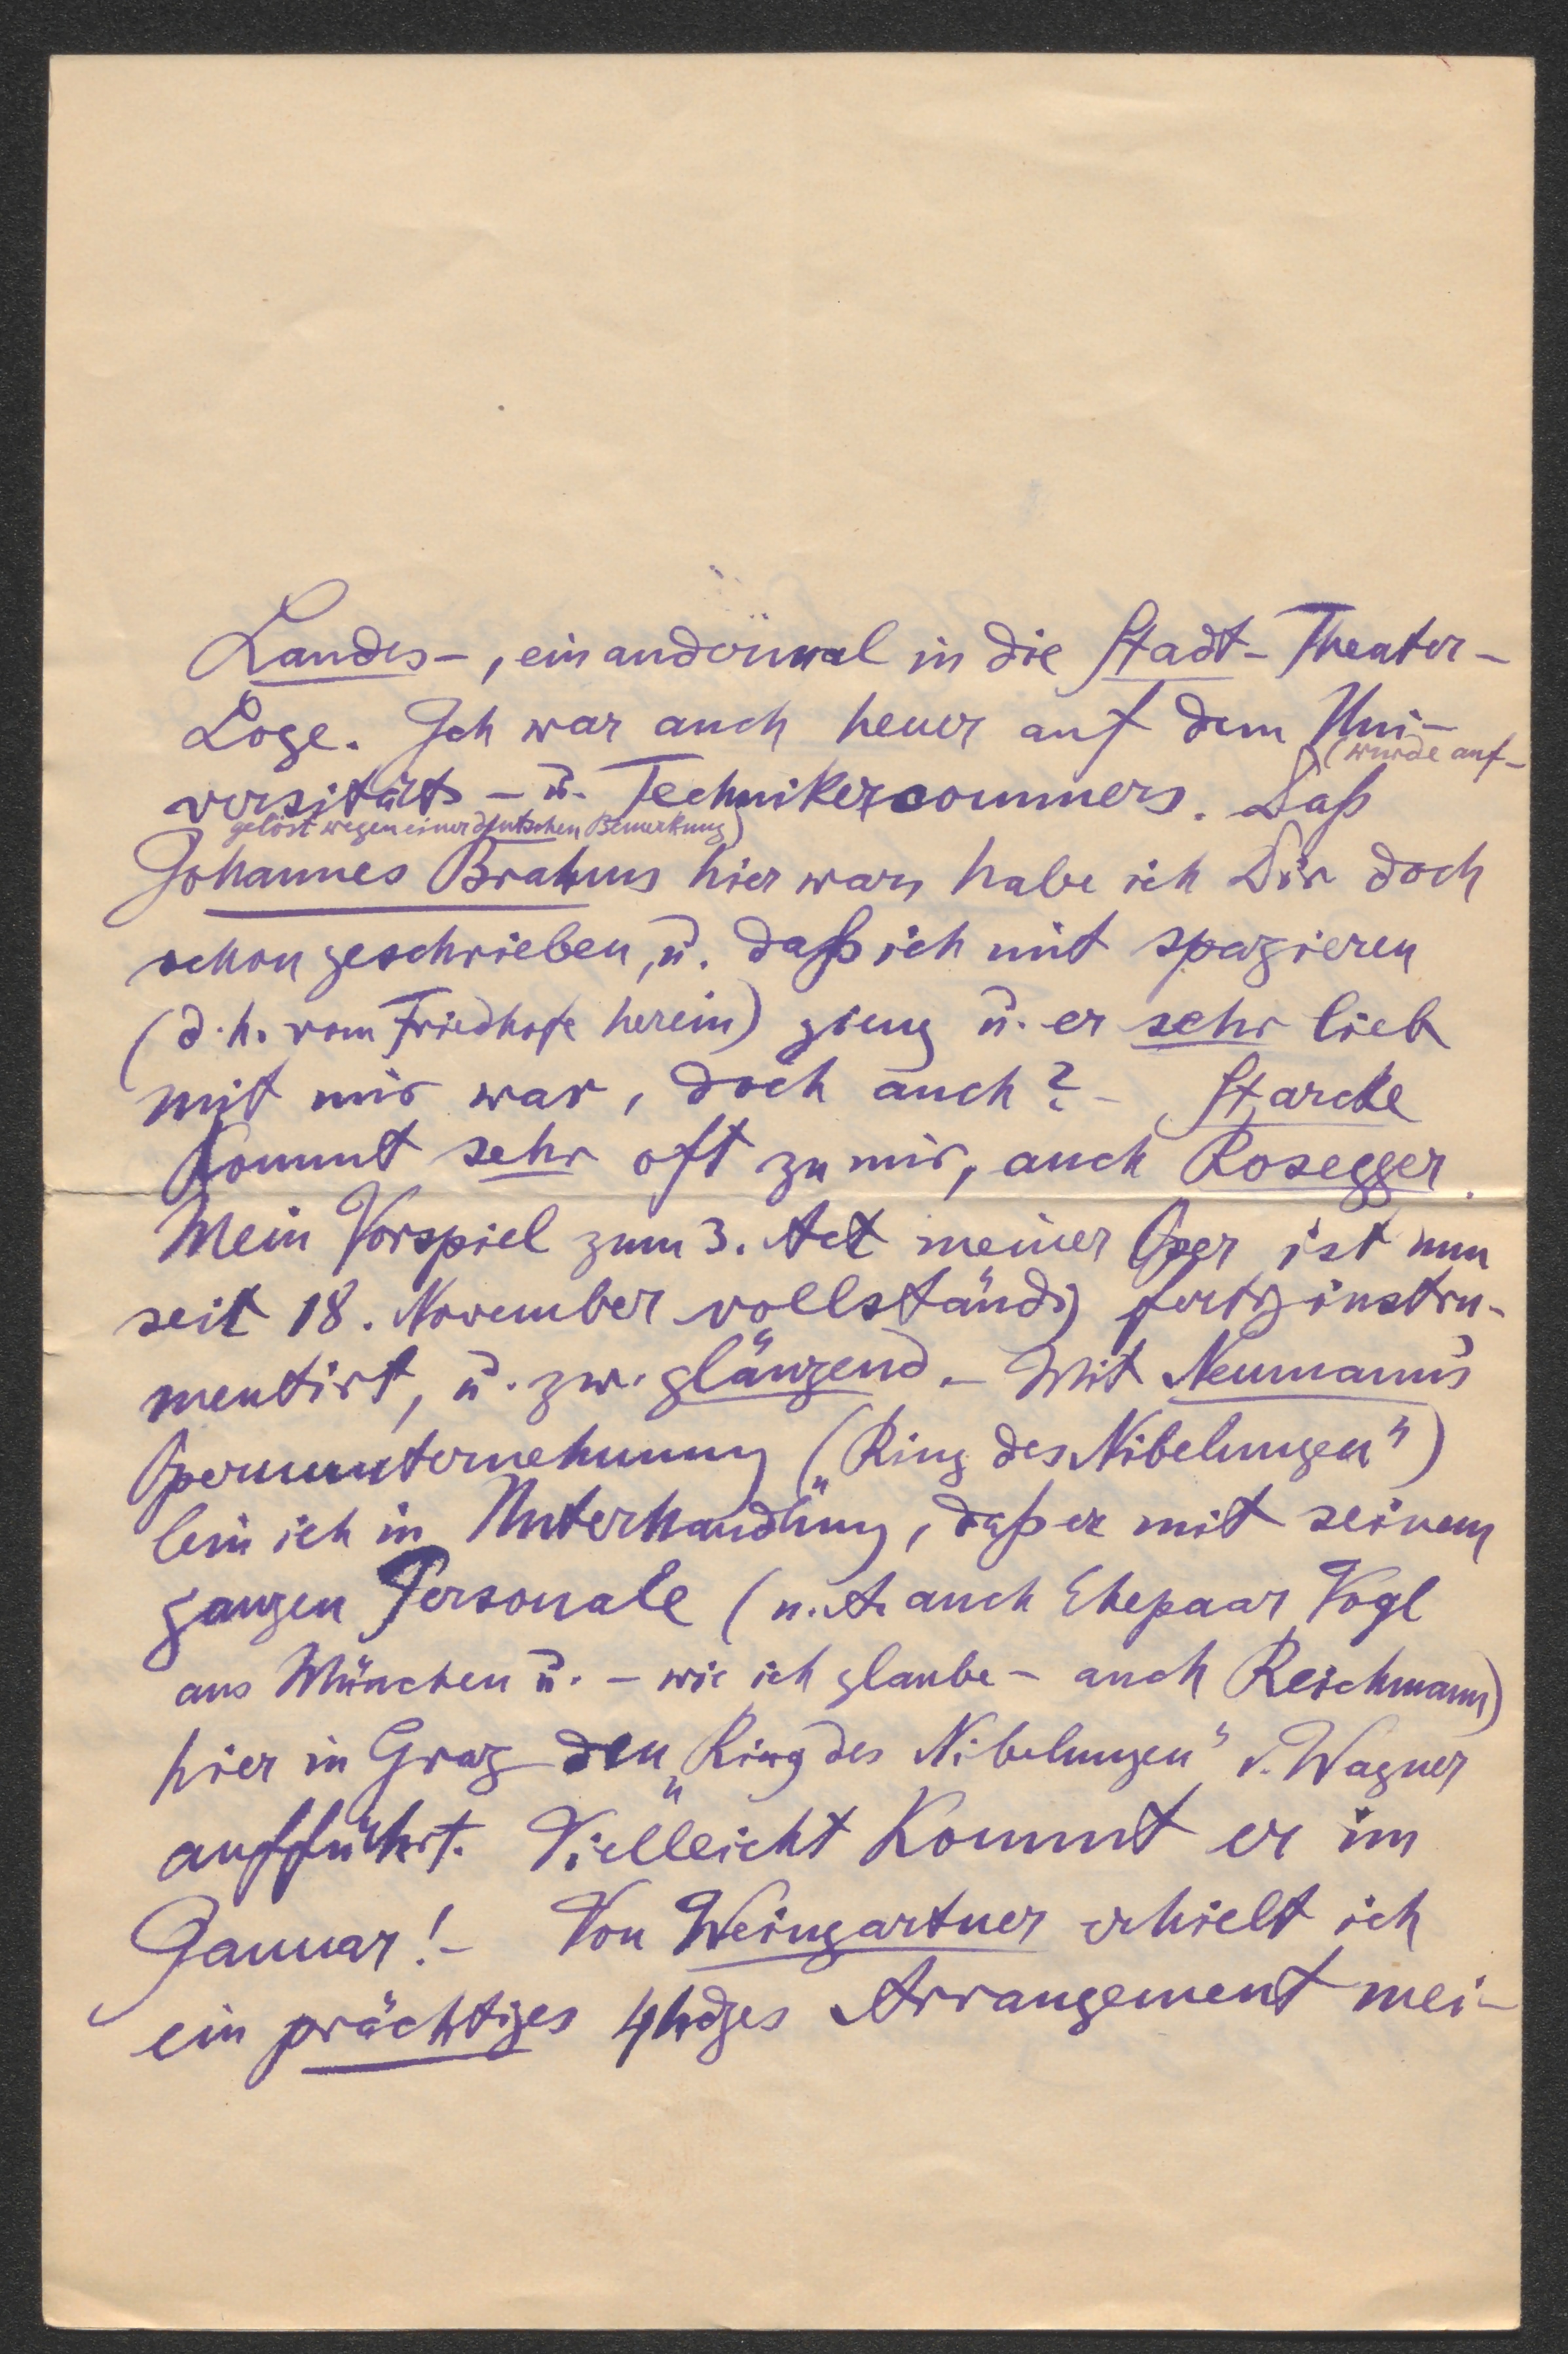 Landes-, ein andermal in die Stadt-Theater-
Loge. Ich war auch heuer auf dem Uni-
(wurde auf-
versitäts- u. Technikercommers. Daß
gelöst wegen einer deutschen Bemerkung)
Johannes Brahms hier war, habe ich Dir doch
schon geschrieben, u. daß ich mit spazieren
(d. h. vom Friedhofe herein) gieng u. er sehr lieb
mit mir war, doch auch? - Starcke
kommt sehr oft zu mir, auch Rosegger.
Mein Vorspiel zum 3. Act meiner Oper ist nun
seit 18. November vollständig fertig instru-
mentirt, u. zw. glänzend. - Mit Neumann's
Opernunternehmung („Ring des Nibelungen")
bin ich in Unterhandlung, daß er mit seinem
ganzen Personale (u. A. auch Ehepaar Vogl
aus München u. - wie ich glaube - auch Reichmann)
hier in Graz den „Ring des Nibelungen" v. Wagner
aufführt. Vielleicht kommt er im
Januar! - Von Weingartner erhielt ich
ein prächtiges 4hdges Arrangement mei-